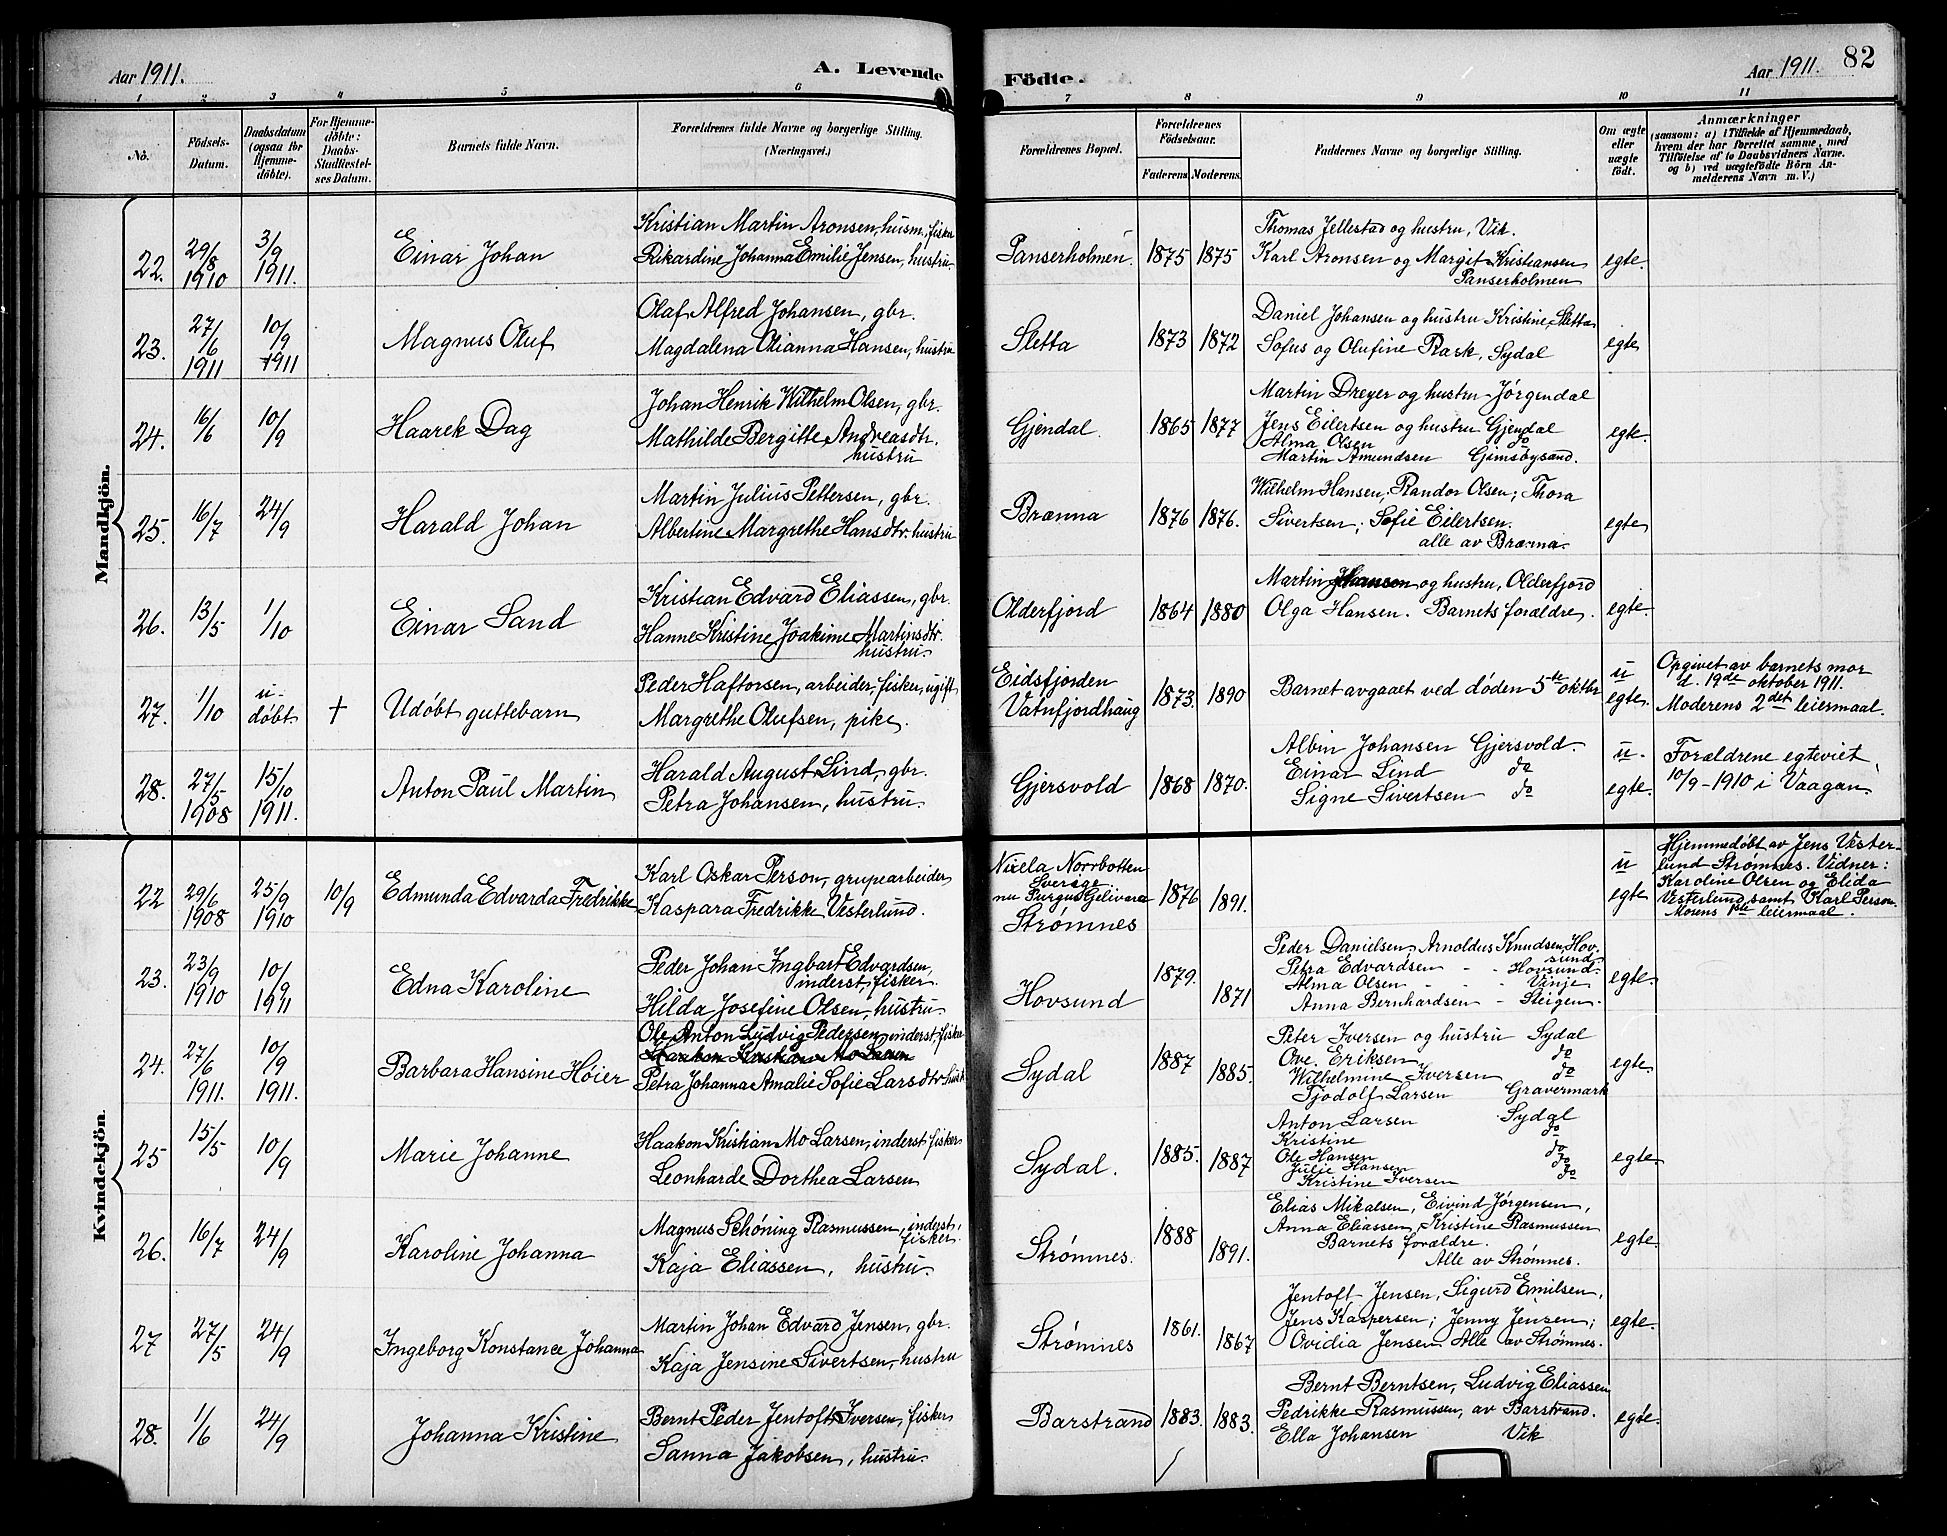 Aar 1911.
A. Levende Födte.
Aar 1911.
82
1 2 3 4 5 6 7 8 9 10 11
No.
Födsels-Datum.
Daabsdatum (ogsaa for Hjemme-döbte).
For Hjemme-döbte: Daabs-Stadfæstel-ses Datum.
Barnets fulde Navn.
Forældrenes fulde Navne og borgerlige Stilling. (Næringsvei.)
Forældrenes Bopæl.
Forældrenes Födselsaar.
Faderens. Moderens.
Faddernes Navne og borgerlige Stilling.
Om ægte eller uægte födt.
Anmærkninger
(saasom: a) i Tilfælde af Hjemmedaab, hvem der har forrettet samme, med Tilföielse af to Daabsvidners Navne. og b) ved uægtefödte Börn An-melderens Navn m. V.)
Mandkjön.
22. 29/8 1910 3/9 1911. Einar Johan
Kristian Martin Aronsen, husm., fisker
Rikardine Johanna Emilie Jensen, hustru.
Panserholmen. 1875 1875
Thomas Jellestad og hustru, Vik.
Karl Aronsen og Margit Kristiansen
Panserholmen
egte.
23. 27/6 1911 10/9 1911 Magnus Oluf
Olaf Alfred Johansen, gbr.
Magdalena Olianna Hansen, hustru
Sletta 1873 1872
Daniel Johansen og hustru Kristine, Sletta
Sofus og Olufine Rask, Sydal
egte
24. 16/6 10/9 Haarek Dag
Johan Henrik Wilhelm Olsen, gbr.
Mathilde Bergitte Andreasdtr.
hustru
Gjendal. 1865 1877
Martin Dreyer og hustru Jørgendal
Jens Eilertsen og hustru Gjendal
Alma Olsen do
Martin Amundsen Gimsøysand.
egte.
25. 16/7 24/9 Harald Johan
Martin Julius Pettersen, gbr.
Albertine Margrethe Hansdtr. hustru
Brænna 1876 1876.
Wilhelm Hansen; Randor Olsen; Thora
Sivertsen; Sofie Eilertsen.
alle av Brænna.
egte
26. 13/5 1/10 Einar Sand
Kristian Edvard Eliassen, gbr.
Hanne Kristine Joakime Martinsdtr.
hustru.
Olderfjord 1864 1880
Martin Johansen og hustru, Olderfjord
Olga Hansen. Barnets forældre.
egte.
27. 1/10 u-døbt † Udøbt guttebarn
Peder Haftorsen, arbeider, fisker, ugift
Margrethe Olufsen, pike.
Eidsfjorden
Vatnfjordhaug 1873. 1890
Barnet avgaaet ved døden 5te oktbr
u egte.
Opgivet av barnets mor
d. 19de oktober 1911.
Moderens 2det leiermaal.
28. 27/5 1908 15/10 1911. Anton Paul Martin
Harald August Lind, gbr.
Petra Johansen, hustru.
Gjersvold 1868 1870.
Albin Johansen Gjersvold.
Einar Lind do
Signe Sivertsen do
u- egte.
Forældrene egteviet
10/9-1910 i Vaagan.
Kvindekjön.
22 29/6 1908 25/9 1910 10/9 Edmunda Edvarda Fredrikke
Karl Oskar Person, grupearbeider
Kaspara Fredrikke Vesterlund.
Norrbotten
Sverige
nu Gelivara
Strømnes
1876 1891.
u egte
Hjemmedøbt av Jens Vester-
lund Strømnes. Vidner:
Karoline Olsen og Elida
Vesterlund samt Karl Person.
Morens 1ste leiermaal.
23. 23/9 1910 10/9 1911 Edna Karoline
Peder Johan Ingbart Edvardsen,
inderst, fisker.
Hilda Josefine Olsen, hustru.
Hovsund 1879. 1871
Peder Danielsen, Arnoldus Knudsen, Hov-
sund.
Petra Edvardsen - - Hovsund.
Alma Olsen - - Vinje
Anna Bernhardsen - Steigen.
egte.
24. 27/6 1911. 10/9 1911. Barbara Hansine Høier
Ole Anton Ludvig Pedersen, inderst, fisker
Haakon Kristian Mo Larsen
Petra Johanna Amalie Sofie Larsdtr. hust.
Sydal 1887 1885.
Peter Iversen og hustru Sydal
Ove Eriksen do
Wilhelmine Iversen do
Tjodolf Larsen Gravermark
egte.
25 15/5 10/9 Marie Johanne
Haakon Kristian Mo Larsen, inderst fisker
Leonharde Dorthea Larsen
Sydal. 1885. 1887
Anton Larsen Sydal
Kristine do
Ole Hansen do
Julie Hansen do
Kristine Iversen do
egte.
26. 16/7 24/9 Karoline Johanna
Magnus Schöning Rasmussen, inderst,
fisker.
Kaja Eliassen, hustru.
Strømnes. 1888 1891.
Elias Mikalsen, Eivind Jørgensen,
Anna Eliassen, Kristine Rasmussen
Barnets forældre.
Alle av Strømnes.
egte.
27 27/5 24/9 Ingeborg Konstance Johanna
Martin Johan Edvard Jensen, gbr.
Kaja Jensine Sivertsen, hustru
Strømnes 1861. 1867
Jentoft Jensen, Sigurd Emilsen,
Jens Kaspersen; Jenny Jensen;
Ovidia Jensen. Alle av Strømnes.
egte.
28. 1/6 24/9 Johanna Kristine
Bernt Peder Jentoft Iversen, fisker
Sanna Jakobsen, hustru.
Barstrand 1883. 1883.
Bernt Berntsen, Ludvig Eliassen
Pedrikke Rasmussen, av Barstrand.
Ella Johansen Vik
egte.